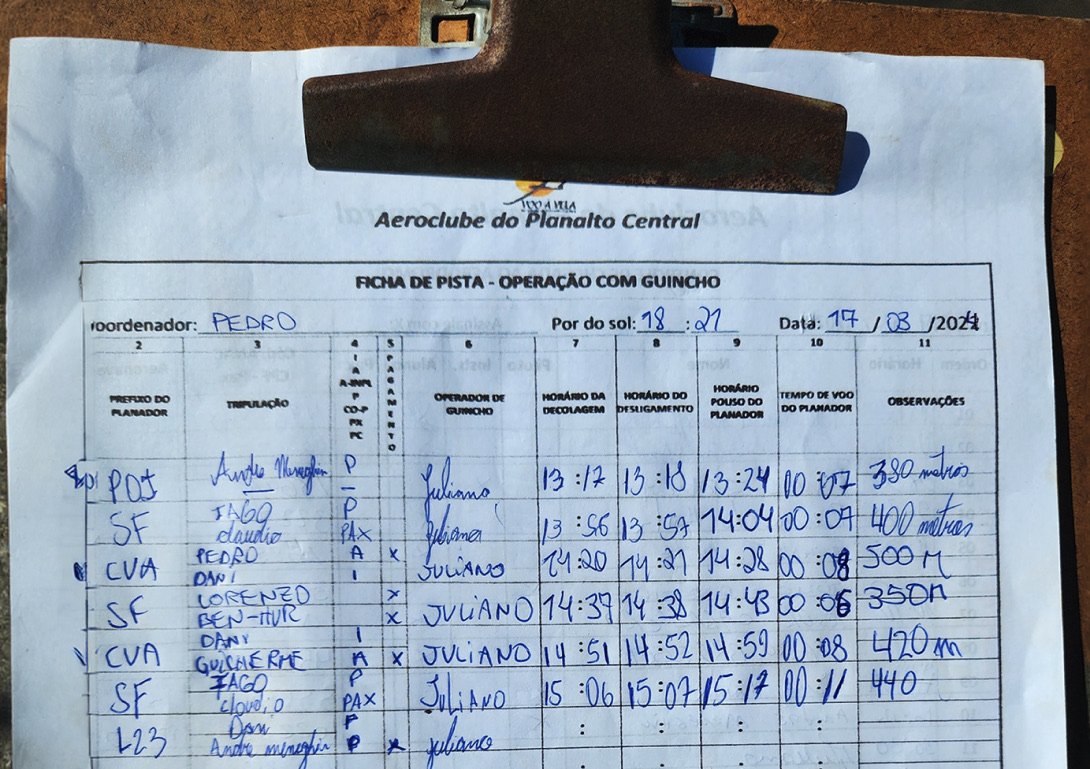 VOO A VELA
Aeroclube do Planalto Central
FICHA DE PISTA - OPERAÇÃO COM GUINCHO
oordenador: PEDRO Por do sol: 18 : 21 Data: 17 / 03 /2024
2 3 4 5 6 7 8 9 10 11
PREFIXO DO PLANADOR TRIPULAÇÃO I A A-INPL P CO-P PX PC PAGAMENTO OPERADOR DE GUINCHO HORÁRIO DA DECOLAGEM HORÁRIO DO DESLIGAMENTO HORÁRIO POUSO DO PLANADOR TEMPO DE VOO DO PLANADOR OBSERVAÇÕES
Andre Meneghin P
PDJ — — Juliano 13 :17 13 :18 13:24 00 :07 380 metros
IAGO P
SF claudio PAX Juliano 13 :56 13 :57 14:04 00 :07 400 metros
PEDRO A x
CVA DANI I JULIANO 14:20 14:21 14:28 00 :08 500 M
LORENZO x
SF BEN-HUR x JULIANO 14:37 14:38 14:43 00 :06 350M
DANI I
CVA GUILHERME A x JULIANO 14 :51 14 :52 14 :59 00 :08 420 m
IAGO P
SF claudio PAX JULIANO 15 :06 15:07 15:17 00 :11 440
Dan P
L23 Andre meneghin P x Juliano : : : :